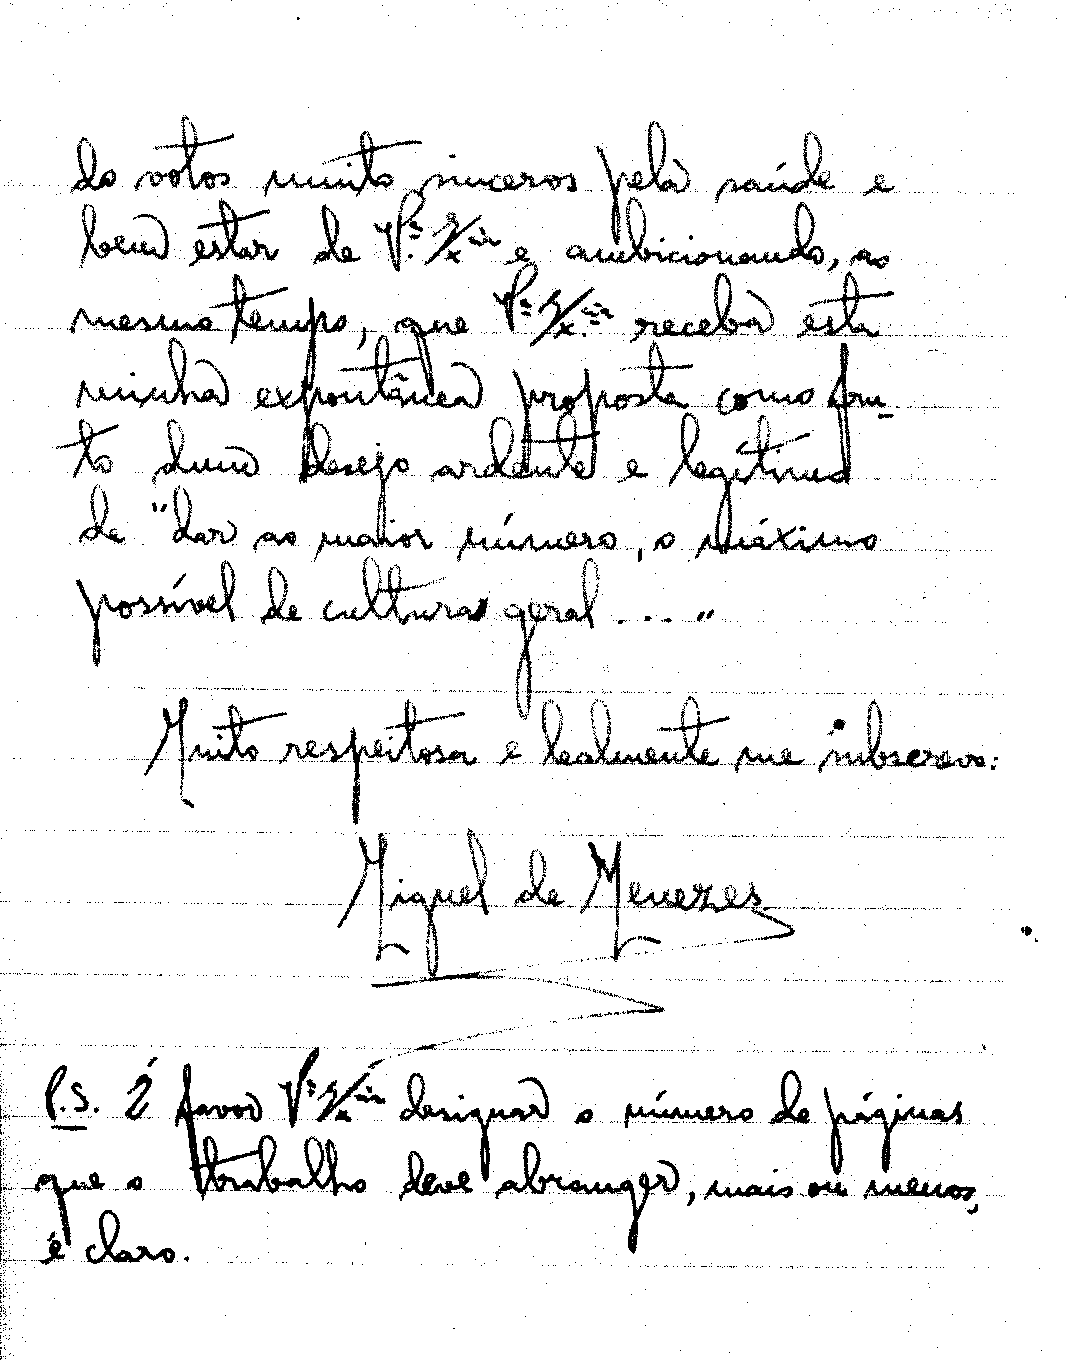 do votos muito sinceros pela saúde e
bem estar de V.ª Ex.ª e ambicionando, ao
mesmo tempo, que V.ª Ex.ª receba esta
minha expontânea proposta como fru-
to dum desejo ardente e legítimo
de "dar ao maior número, o máximo
possível de cultura geral...."
Muito respeitosa e lealmente me subscrevo:
Miguel de Menezes
P.S. É favor V.ª Ex.ª designar o número de páginas
que o trabalho deve abranger, mais ou menos,
é claro.